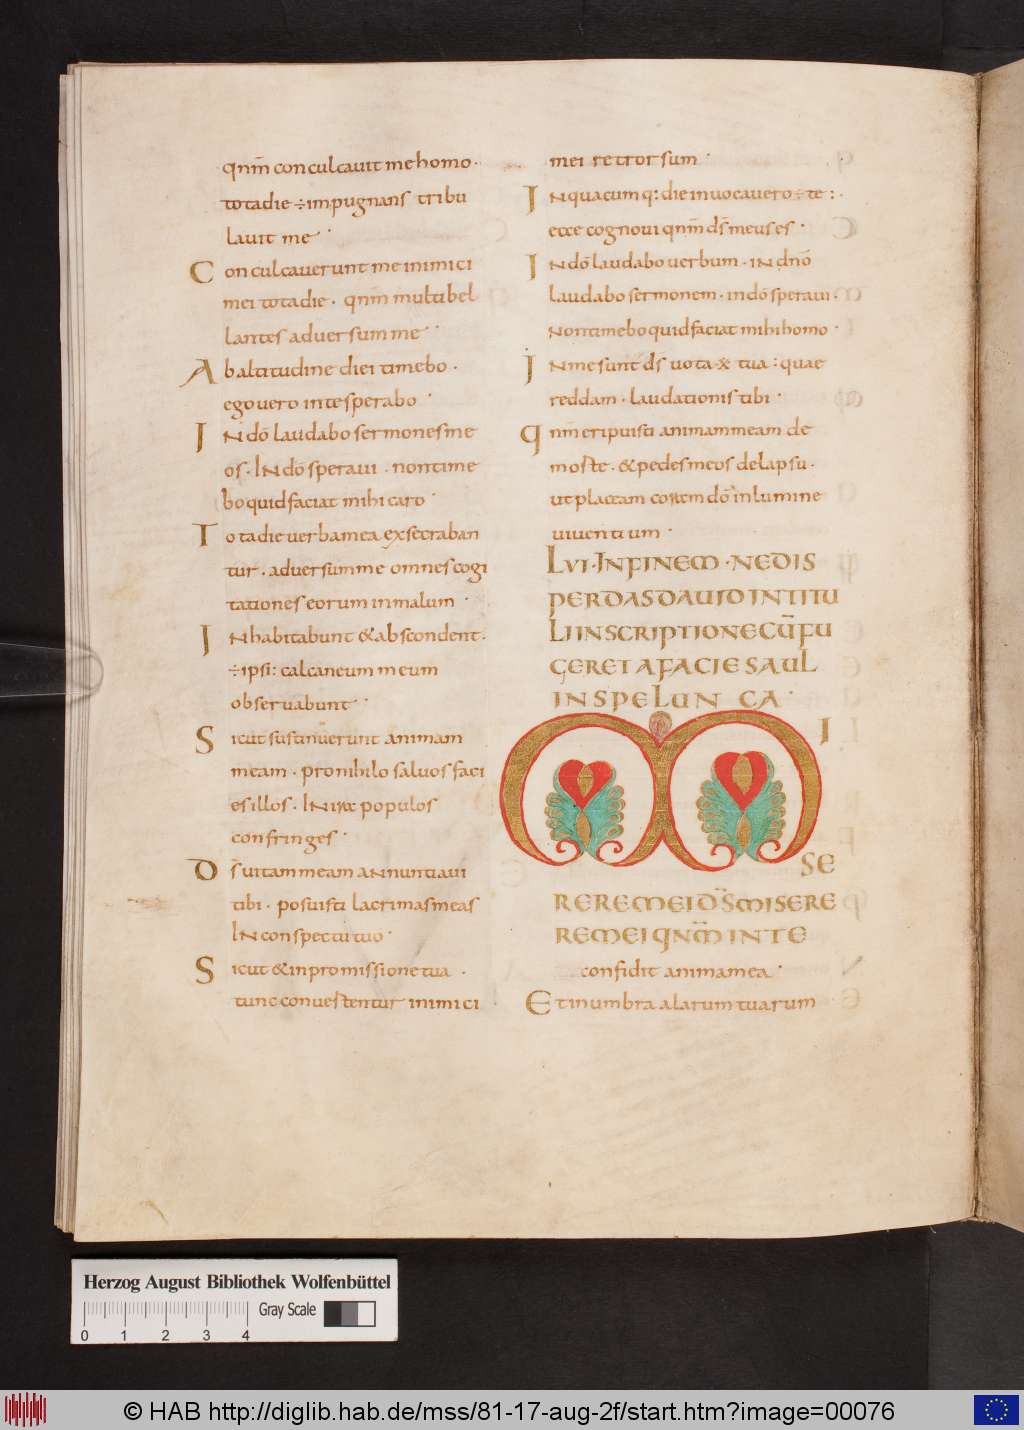 qnm̄ conculcauit me homo·
tota die ÷ impugnans tribu
lauit me·
Conculcauerunt me inimici
mei tota die· qnm̄ multi bel
lantes aduersum me·
Ab altitudine diei timebo·
ego uero in te sperabo·
IN dō laudabo sermones me
os· IN dō speraui· non time
bo quid faciat mihi caro·
Tota die uerba mea exsecraban
tur· aduersum me omnes cogi
tationes eorum in malum·
INhabitabunt & abscondent·
÷ ipsi: calcaneum meum
obseruabunt·
Sicut sustinuerunt animam
meam· pro nihilo saluos faci
es illos· IN ira populos
confringes·
Ds̄ uitam meam aNnuntiaui
tibi· posuisti lacrimas meas
IN conspectu tuo·
Sicut & in promissione tua·
tunc conuertentur inimici
mei retrorsum·
IN quacumq: die inuocauero ÷ te:·
ecce cognoui qnm̄ ds̄ meus es·
IN dō laudabo uerbum· IN dnō
laudabo sermonem· in dō speraui·
Non timebo quid faciat mihi homo·
IN me sunt ds̄ uota ※ tua: quae
reddam· laudationis tibi·
qnm̄ eripuisti animam meam de
morte· & pedes meos de lapsu·
ut placeam coram dō in lumine
uiuentium·
LVI· IN FINEM· NE DIS
PERDAS DAUID IN TITU
LI INSCRIPTIONE CŪ FU
GERET A FACIE SAUL
IN SPELUNCA·
MI
SE
RERE MEI DS̄ MISERE
RE MEI QNM̄ IN TE
confidit anima mea·
Et in umbra alarum tuarum
Herzog August Bibliothek Wolfenbüttel
Gray Scale
0 1 2 3 4
© HAB http://diglib.hab.de/mss/81-17-aug-2f/start.htm?image=00076